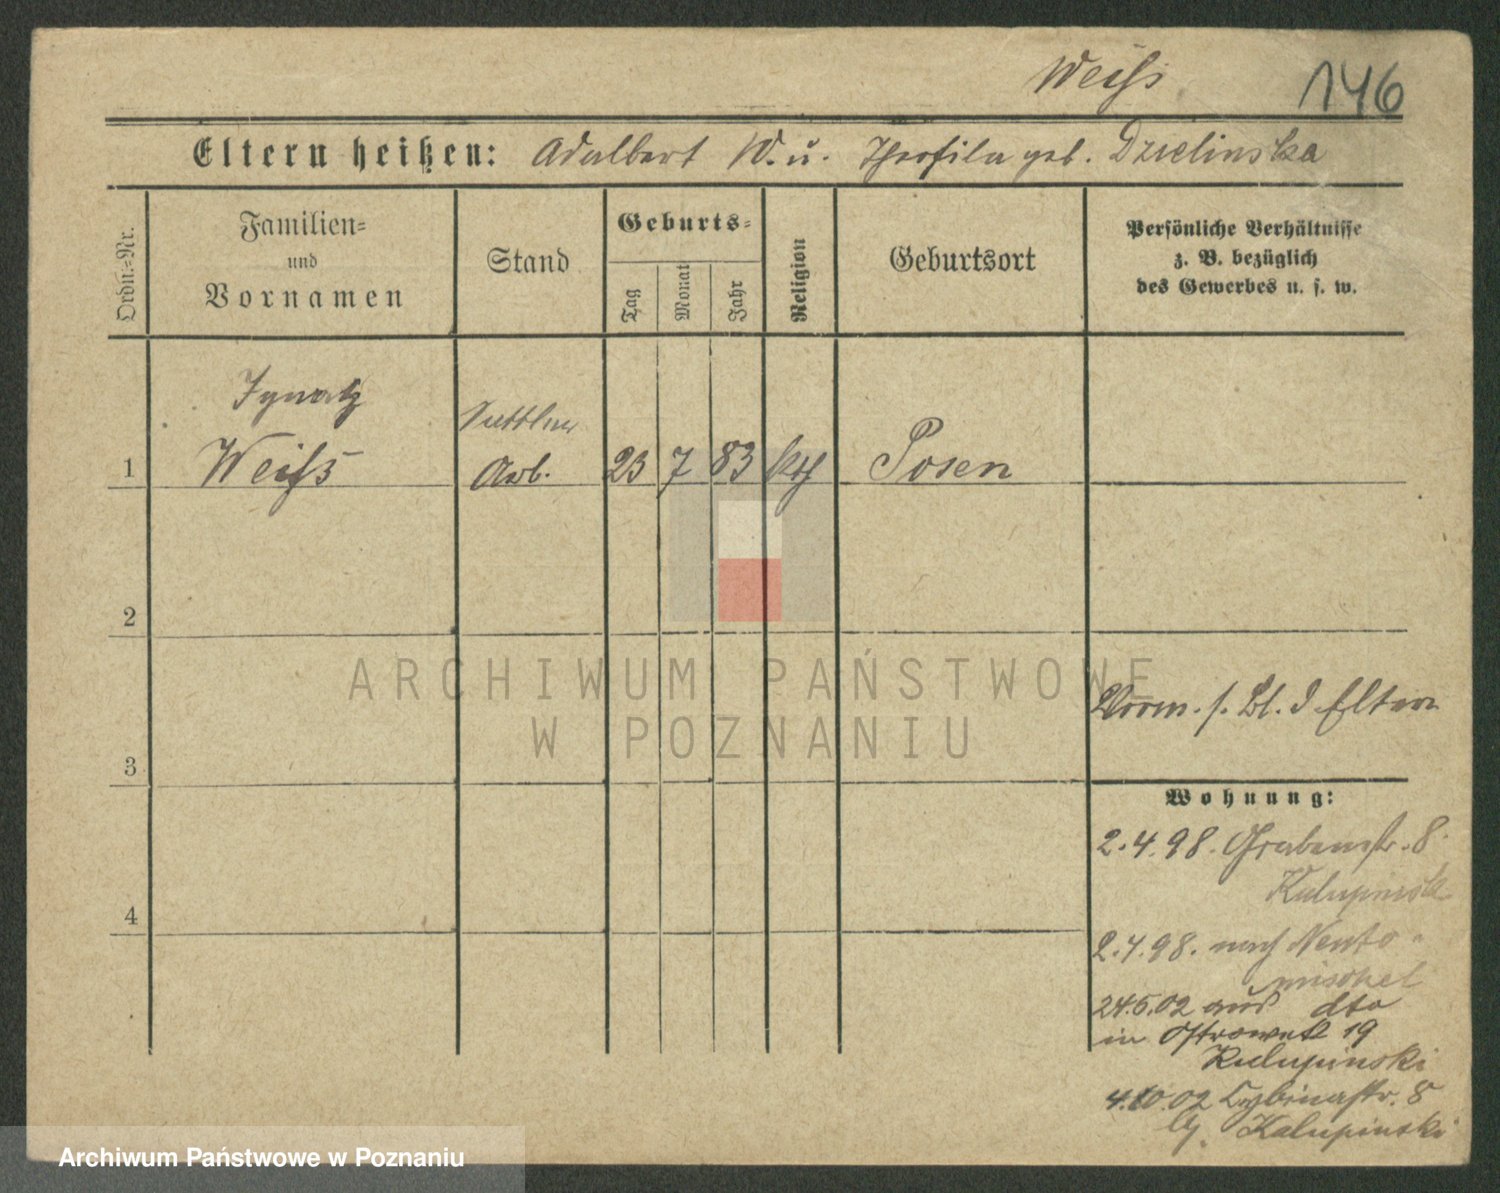 Weiß
146
Eltern heißen: Adalbert W. u. Theofila geb. Dzielinska
Ordn.-Nr.
Familien-
und
Vornamen
Stand
Geburts-
Tag
Monat
Jahr
Religion
Geburtsort
Persönliche Verhältnisse
z. B. bezüglich
des Gewerbes u. s. w.
Ignatz
1 Weiß Arb. 23 7 83 kth Posen
2
Vorm. s. Bl. d Eltern
3
Wohnung:
2.4.98. Grabenstr. 8.
Kalupinski
4
2.4.98. nach Neuto-
mischel
24.5.02 aus dto
in Ostrowek 19
Kalupinski
4.10.02 Cybinastr. 8
Kalupinski
ARCHIWUM PAŃSTWOWE
W POZNANIU
Archiwum Państwowe w Poznaniu